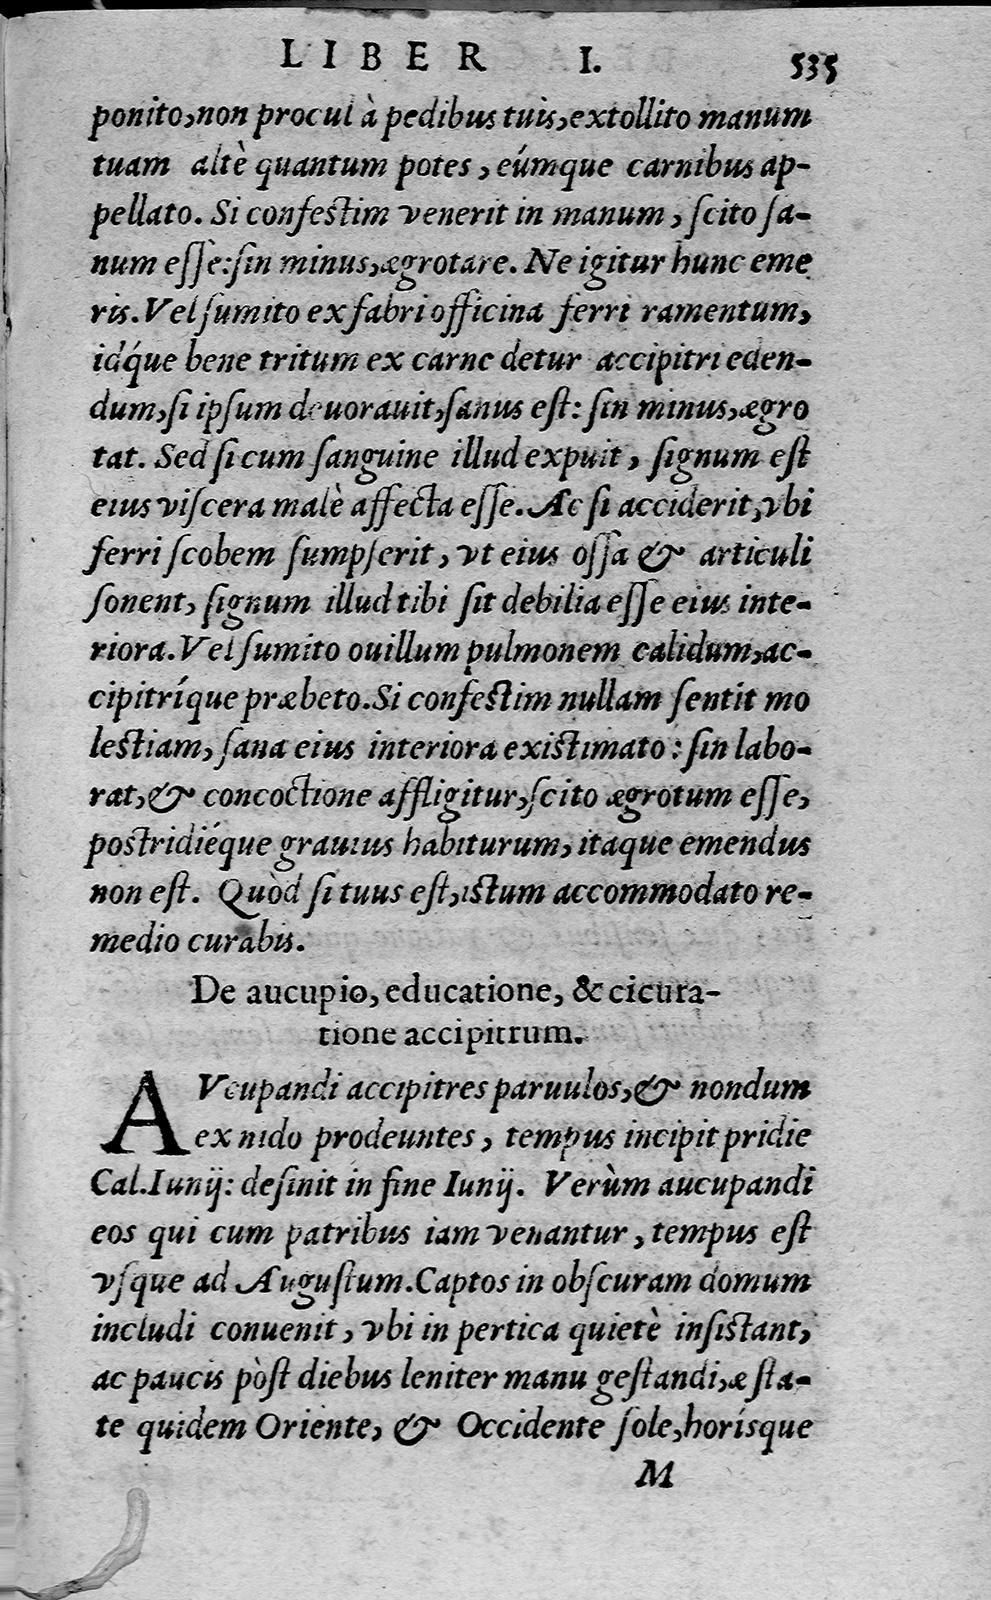 LIBER I. 535
ponito, non procul à pedibus tuis, extollito manum
tuam altè quantum potes, eúmque carnibus ap-
pellato. Si confestim venerit in manum, scito sa-
num esse: sin minus, ægrotare. Ne igitur hunc eme
ris. Vel sumito ex fabri officina ferri ramentum,
idq́ue bene tritum ex carne detur accipitri eden-
dum, si ipsum deuorauit, sanus est: sin minus, ægro
tat. Sed si cum sanguine illud expuit, signum est
eius viscera malè affecta esse. Ac si acciderit, vbi
ferri scobem sumpserit, vt eius ossa & articuli
sonent, signum illud tibi sit debilia esse eius inte-
riora. Vel sumito ouillum pulmonem calidum, ac-
cipitríque præbeto. Si confestim nullam sentit mo
lestiam, sana eius interiora existimato: sin labo-
rat, & concoctione affligitur, scito ægrotum esse,
postridiéque grauius habiturum, itaque emendus
non est. Quòd si tuus est, istum accommodato re-
medio curabis.
De aucupio, educatione, & cicura-
tione accipitrum.
AVcupandi accipitres paruulos, & nondum
ex nido prodeuntes, tempus incipit pridie
Cal. Iunij: desinit in fine Iunij. Verùm aucupandi
eos qui cum patribus iam venantur, tempus est
vsque ad Augustum. Captos in obscuram domum
includi conuenit, vbi in pertica quietè insistant,
ac paucis pòst diebus leniter manu gestandi, æsta-
te quidem Oriente, & Occidente sole, horísque
M